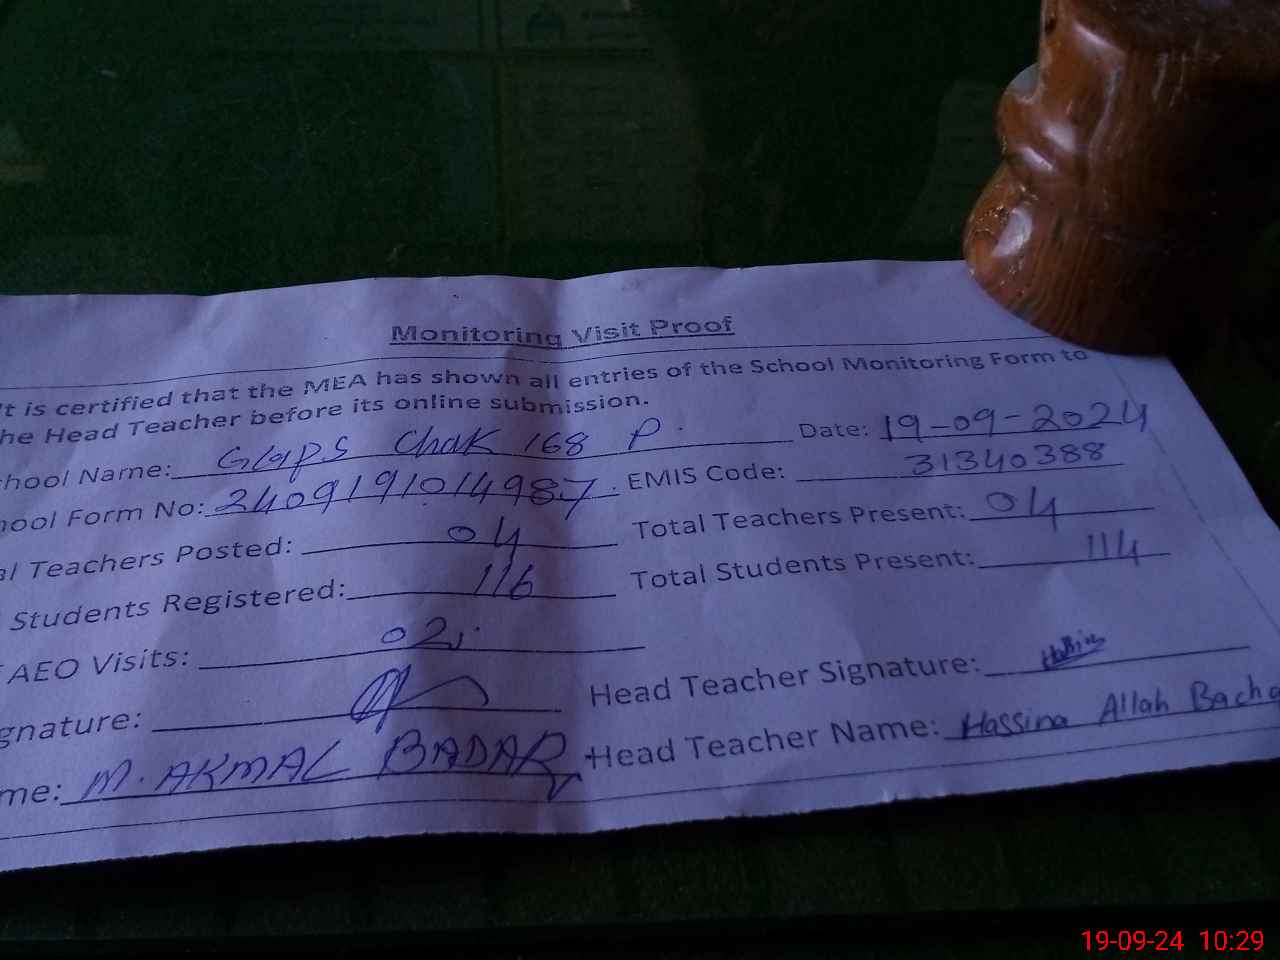 Monitoring Visit Proof
It is certified that the MEA has shown all entries of the School Monitoring Form to
he Head Teacher before its online submission.
hool Name: Glaps Chak 168 P. Date: 19-09-2024
ool Form No: 2409191014987 EMIS Code: 31340388
al Teachers Posted: 04 Total Teachers Present: 04
Students Registered: 116 Total Students Present: 114
AEO Visits: 02
gnature: Head Teacher Signature:
me: M. AKMAL BADAR Head Teacher Name: Hassina Allah Bacha
19-09-24 10:29